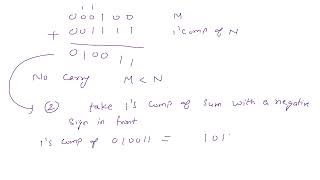 1 1
0 0 0 1 0 0 M
+ 0 0 1 1 1 1 1's comp of N
0 1 0 0 1 1
No Carry M < N
② take 1's comp of sum with a negative
sign in front
1's comp of 010011 = 101